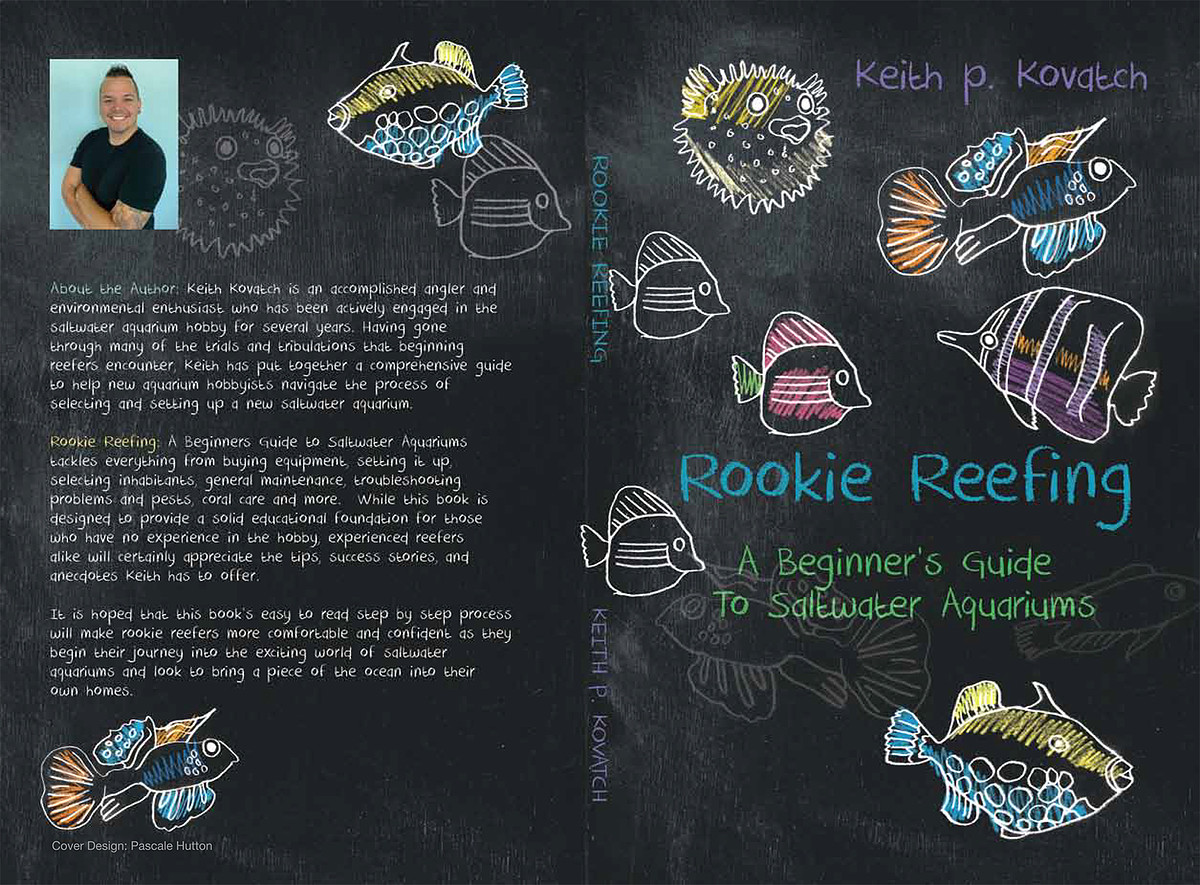 About the Author: Keith Kovatch is an accomplished angler and
environmental enthusiast who has been actively engaged in the
saltwater aquarium hobby for several years. Having gone
through many of the trials and tribulations that beginning
reefers encounter, Keith has put together a comprehensive guide
to help new aquarium hobbyists navigate the process of
selecting and setting up a new saltwater aquarium.
Rookie Reefing: A Beginners Guide to Saltwater Aquariums
tackles everything from buying equipment, setting it up,
selecting inhabitants, general maintenance, troubleshooting
problems and pests, coral care and more. While this book is
designed to provide a solid educational foundation for those
who have no experience in the hobby, experienced reefers
alike will certainly appreciate the tips, success stories, and
anecdotes Keith has to offer.
It is hoped that this book's easy to read step by step process
will make rookie reefers more comfortable and confident as they
begin their journey into the exciting world of saltwater
aquariums and look to bring a piece of the ocean into their
own homes.
Cover Design: Pascale Hutton
ROOKIE REEFING
KEITH P. KOVATCH
Keith P. Kovatch
Rookie Reefing
A Beginner's Guide
To Saltwater Aquariums